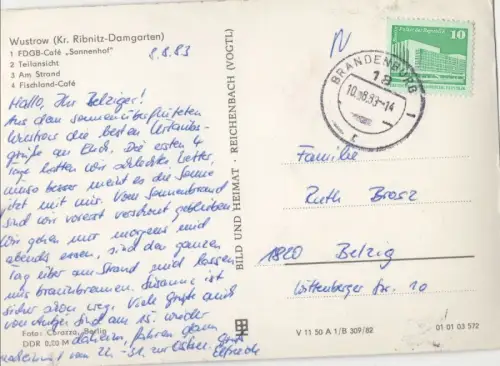 Wustrow (Kr. Ribnitz-Damgarten)
1 FDGB-Café „Sonnenhof"
2 Teilansicht
3 Am Strand
4 Fischland-Café
8.8.83
Hallo, Ihr Belziger!
Aus dem sonnenüberfluteten
Wustrow die besten Urlaubs-
grüße an Euch. Die ersten 4
Tage hatten wir schlechtes Wetter,
umso besser meint es die Sonne
jetzt mit uns. Vom Sonnenbrand
sind wir vorerst verschont geblieben
Wir gehen nur morgens und
abends essen, sind den ganzen
Tag über am Strand und lassen
uns braunbrennen. Susanne ist
sicher schon weg. Viele Grüße auch
von Antje. Sind am 15. wieder
daheim, fahren dann
nochmal vom 22. - 31. zur Ostsee. Gruß
Elfriede
Foto: Corazza, Berlin
DDR 0,03 M
BILD UND HEIMAT · REICHENBACH (VOGTL)
V 11 50 A 1/B 309/82
01 01 03 572
10
BRANDENBURG 1
18
10.08.83-14
Familie
Ruth
1820 Belzig
Wittenberger Str. 10